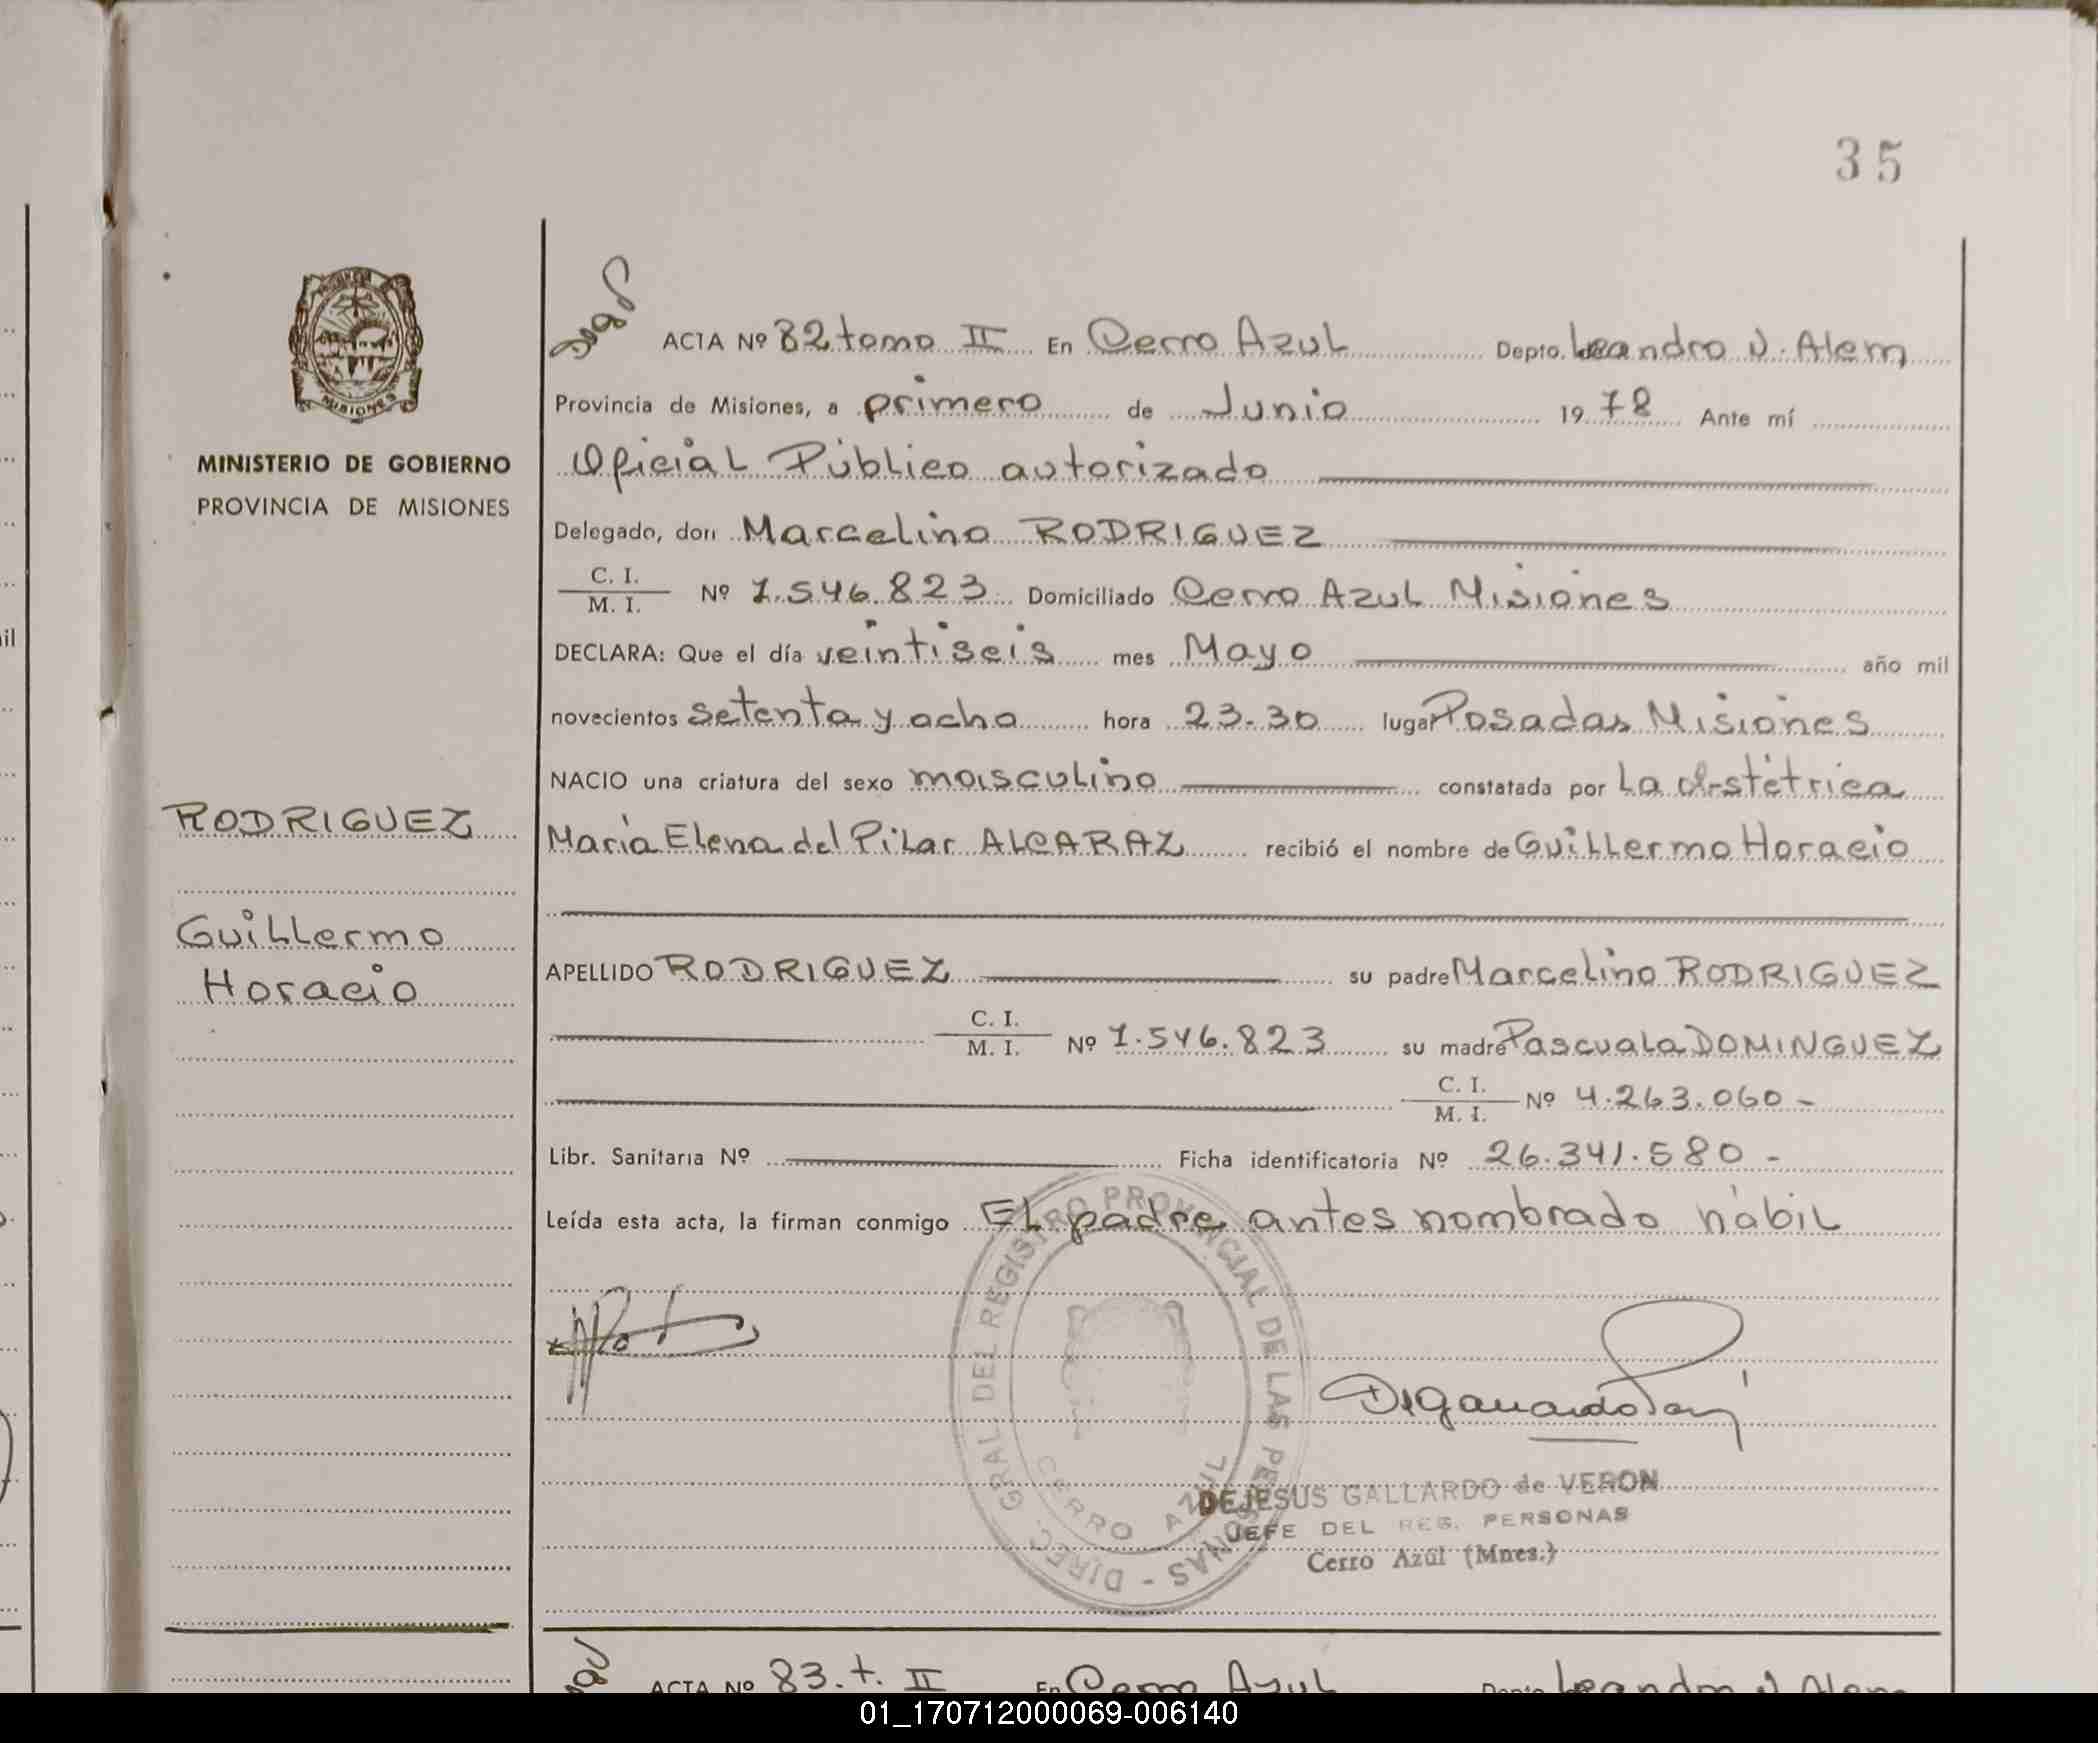 35
PROVINCIA
MISIONES
MINISTERIO DE GOBIERNO
PROVINCIA DE MISIONES
RODRIGUEZ
Guillermo
Horacio
ACTA Nº 82 tomo II En Cerro Azul Depto. Leandro N. Alem
Provincia de Misiones, a primero de Junio 1978 Ante mí
Oficial Público autorizado
Delegado, don Marcelino RODRIGUEZ
C. I.
M. I. Nº 7.546.823 Domiciliado Cerro Azul Misiones
DECLARA: Que el día veintiseis mes Mayo año mil
novecientos setenta y ocho hora 23.30 lugar Posadas Misiones
NACIO una criatura del sexo masculino constatada por la obstétrica
María Elena del Pilar ALCARAZ recibió el nombre de Guillermo Horacio
APELLIDO RODRIGUEZ su padre Marcelino RODRIGUEZ
C. I.
M. I. Nº 7.546.823 su madre Pascuala DOMINGUEZ
C. I.
M. I. Nº 4.263.060-
Libr. Sanitaria Nº Ficha identificatoria Nº 26.341.580-
Leída esta acta, la firman conmigo El padre antes nombrado hábil
DIREC. GRAL DEL REGISTRO PROVINCIAL DE LAS PERSONAS -
CERRO AZUL
DEJESUS GALLARDO de VERON
JEFE DEL REG. PERSONAS
Cerro Azúl (Mnes.)
ACTA Nº 83 t. II En Cerro Azul Depto. Leandro N Alem
01_170712000069-006140